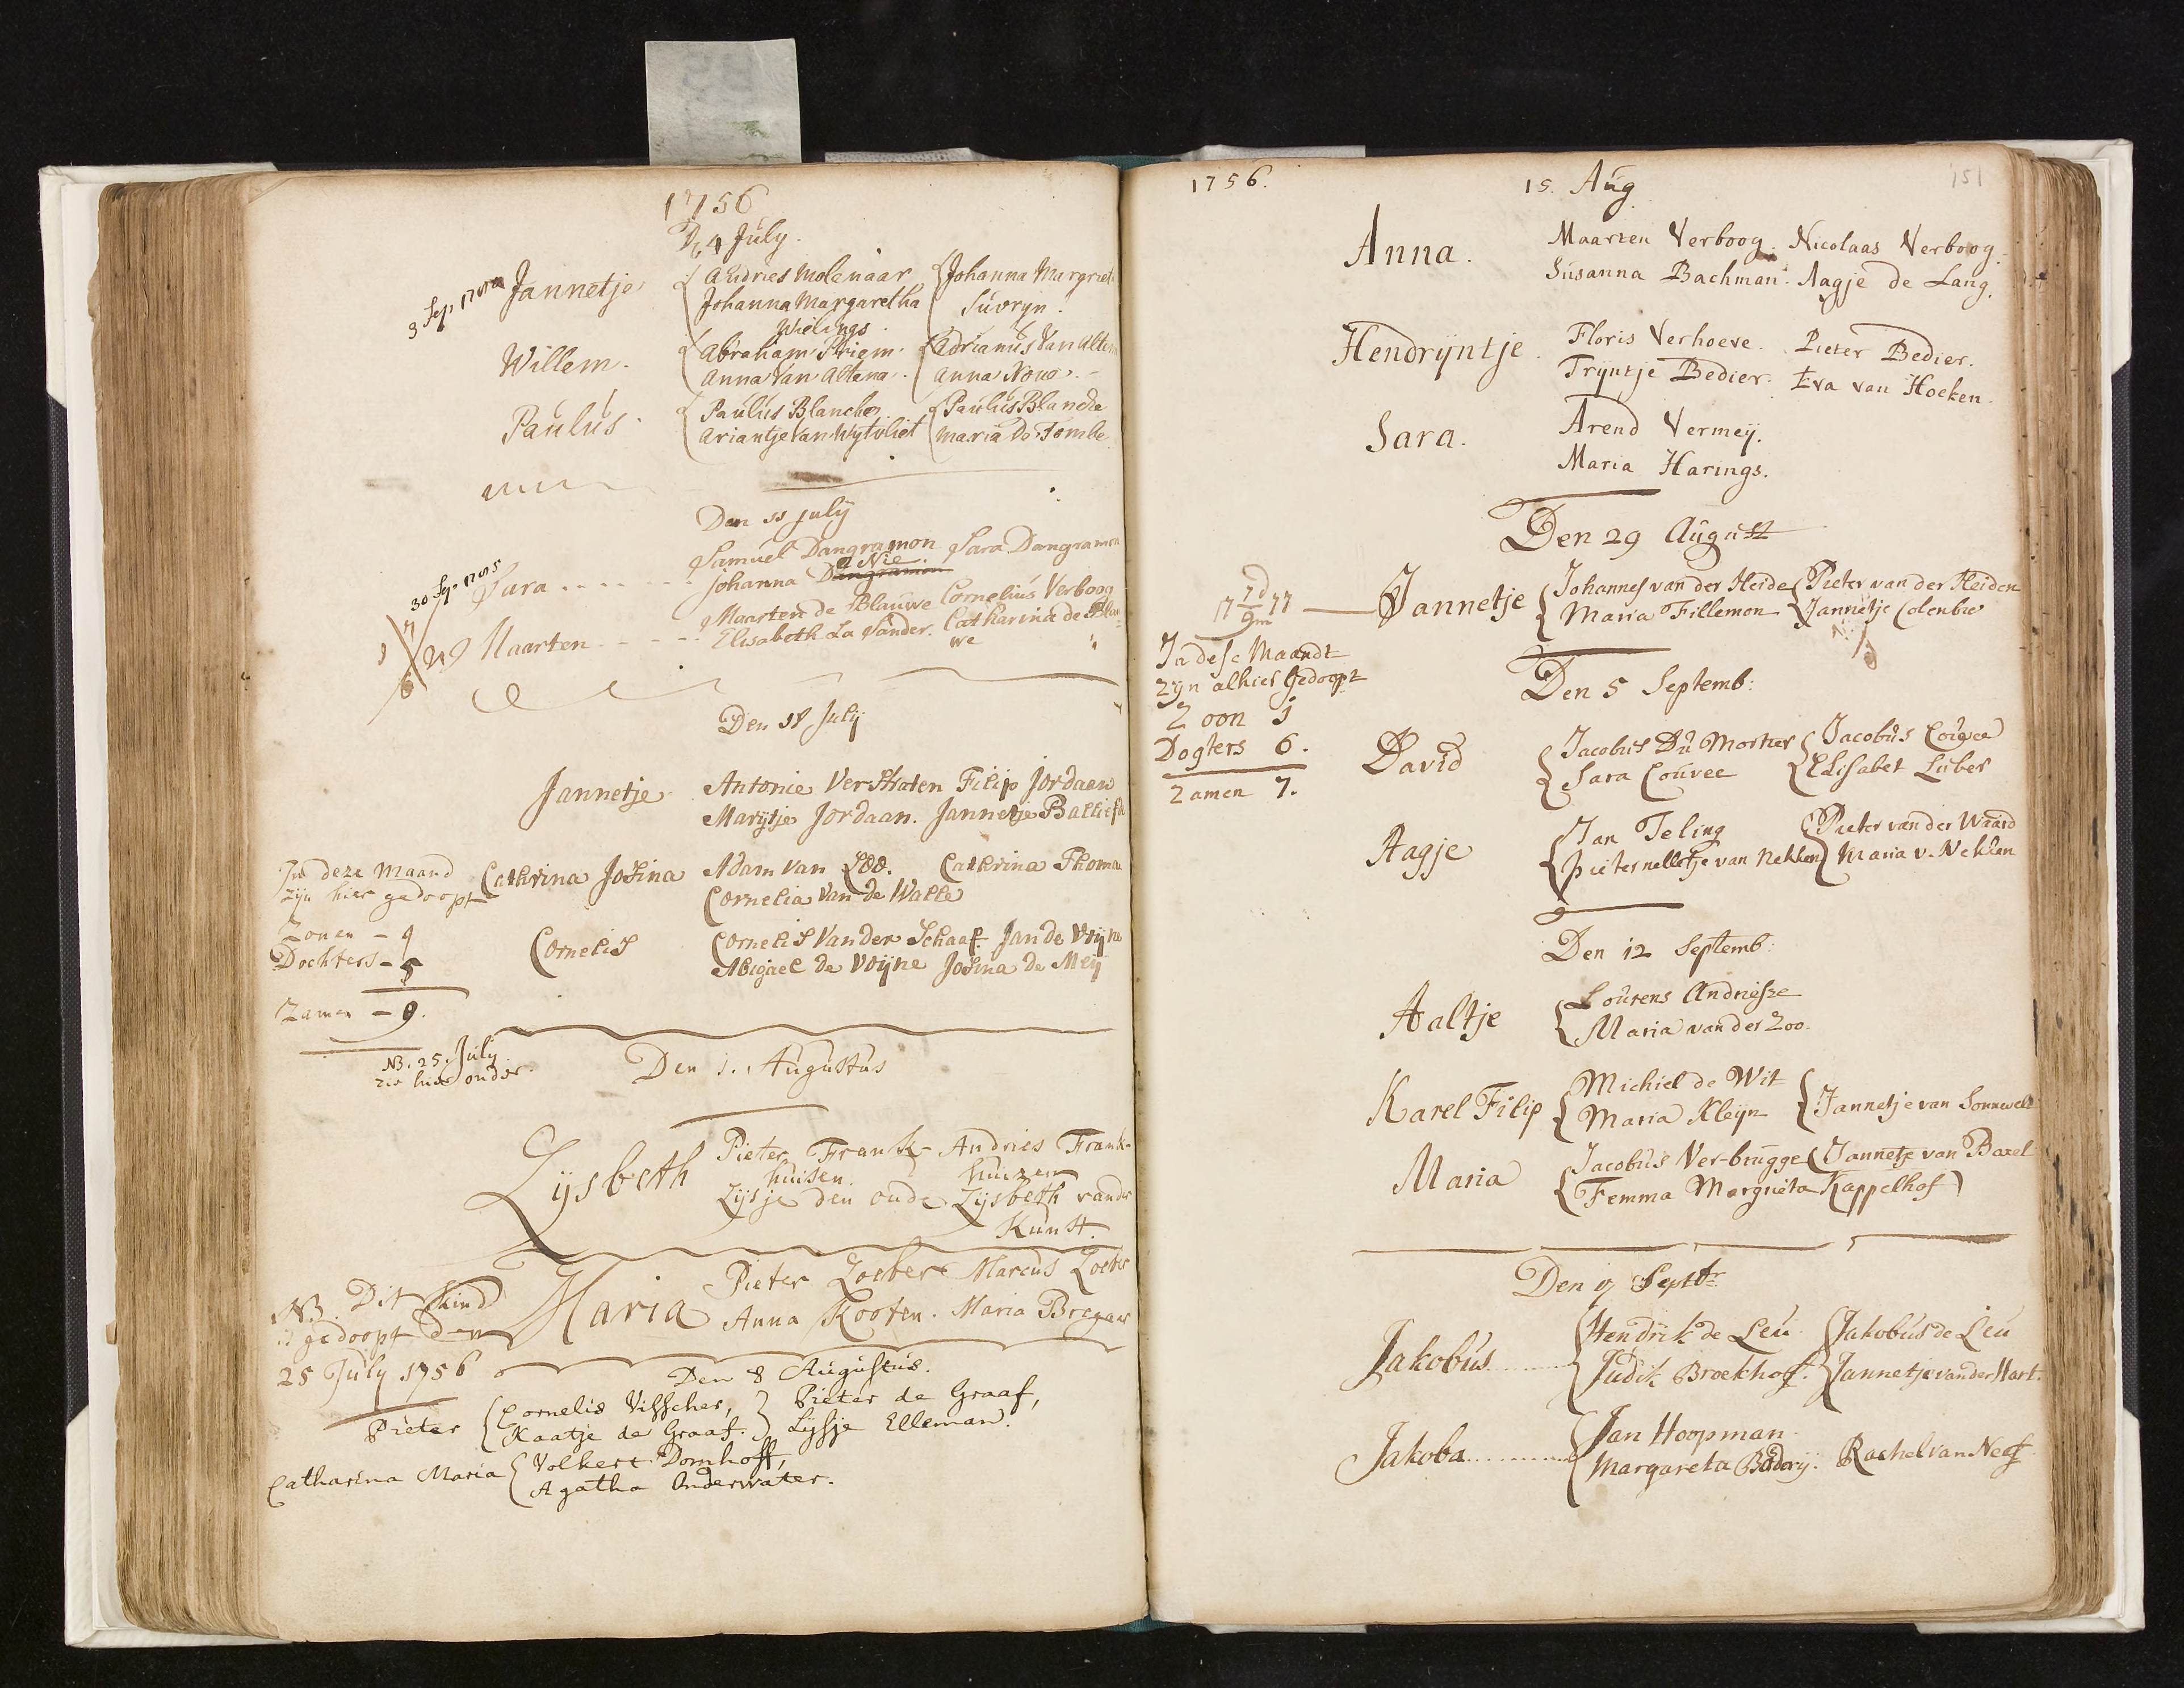 1756
D 4 July.
3 Sep
Jannetje
Andries Molenaar
Johanna Margriet
Johanna Margaretha
Suvryn.
Wielings.
Willem.
Abraham Priem.
Adrianus Van Alten
Anna Van Altena.
Anna Nouo.
Paulus.
Paulus Blanche
Paulus Blanche
Ariantje Van Wytvliet
Maria De Tombe
Den 11 july
30 Sep
Sara
Samuel Dangramon
Sara Dangramon
Nie
Johanna Dangramon
Maarten
Maarten de Blauwe
Cornelius Verboog
Elisabeth La Vander.
Catharina de Blau
we
Den 18 July
Jannetje
Antonie Verstraten
Filip Jordaan
Marijtje Jordaan.
Jannetje Balliefd
In deze Maand
zijn hier gedoopt
Zonen - 4
Dochters - 5
Zamen - 9.
Cathrina Josina
Adam van Loo.
Cathrina Thoma
Cornelia Van de Walle
Cornelis
Cornelis Vander Schaaf
Jan de Vrijne
Abigael de Vrijne
Josina de Meij
NB. 25. July
zie hier onder.
Den 1. Augustus
Lijsbeth
Pieter Frank-
Andries Frank-
huisen.
huizen
Lijsje den oude
Lijsbeth vander
Kunst.
NB. Dit kind
is gedoopt den
25 July 1756
Maria
Pieter Loeber
Marcus Loeber
Anna Kooten.
Maria Bregaer
Den 8 Augustus.
Pieter
Cornelis Visscher,
Pieter de Graaf,
Kaatje de Graaf.
Lijsje Elleman.
Catharina Maria
Volkert Domhoff,
Agatha Onderwater.
1756.
15. Aug
151
Anna.
Maarten Verboog.
Nicolaas Verboog.
Susanna Bachman.
Aagje de Lang.
Hendrijntje.
Floris Verhoeve.
Pieter Bedier.
Trijntje Bedier.
Eva van Hoeken.
Sara.
Arend Vermeij.
Maria Harings.
Den 29 August
17 7d/9m 77
Jannetje
Johannes van der Heide
Pieter van der Heiden
Maria Fillemon
Jannetje Colenbie
In dese Maandt
zijn alhier Gedoopt
Zoon 1
Dogters 6.
Zamen 7.
Den 5 Septemb:
David
Jacobus Du Mortier
Jacobus Couvee
Sara Couvee
Elisabet Luber
Aagje
Jan Teling
Pieter van der Waard
Pieternelletje van Nekken
Maria v. Nekken
Den 12 Septemb:
Aaltje
Lourens Andriesze
Maria van der Zoo.
Karel Filip
Michiel de Wit
Maria Kleijn
Jannetje van Sonneveld
Maria
Jacobus Ver-brugge
Jannetje van Baxel
Femma Margrieta Kappelhof
Den Septbr
Jakobus
Hendrik de Leu
Jakobus de Leu
Judik Broekhof.
Jannetje vander Hart.
Jakoba
Jan Hoopman
Margareta Badorij.
Rachel van Neef